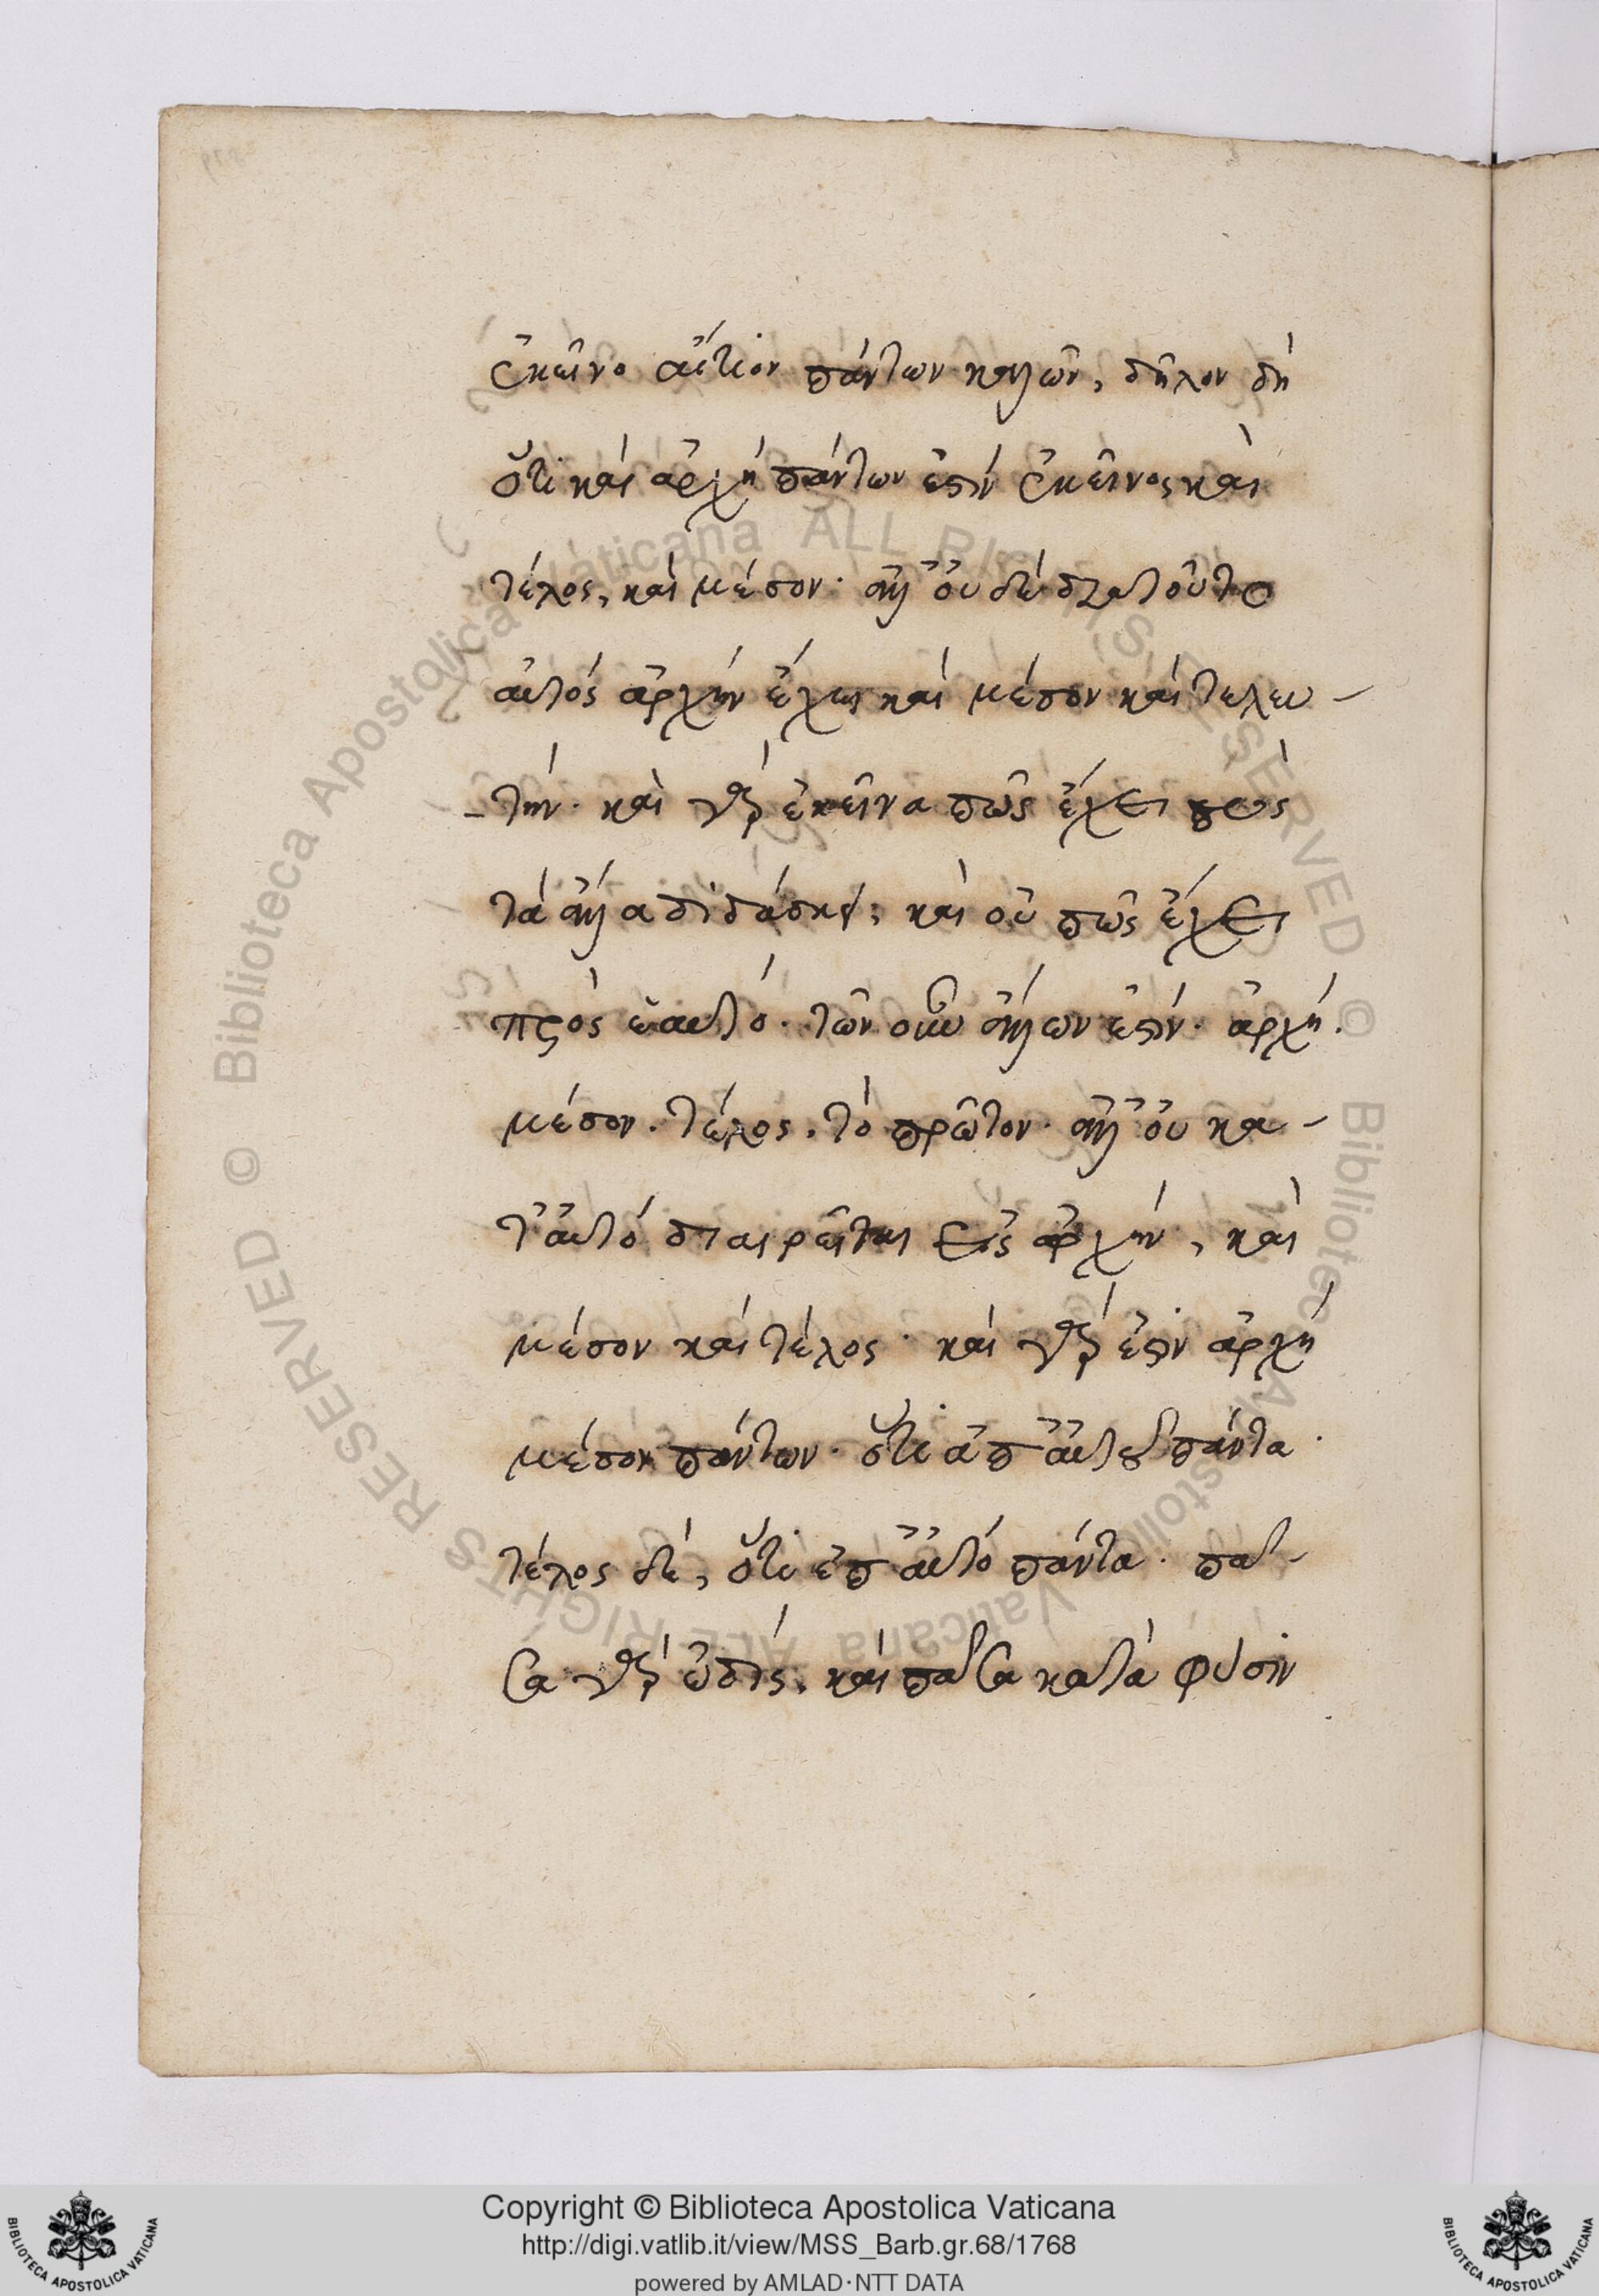 ἐκεῖνο αἴτιον πάντων καλῶν, δῆλον δὴ
ὅτι καὶ ἀρχὴ πάντων ἐστὶν ἐκεῖνος καὶ
τέλος, καὶ μέσον· ἀλλ' οὐ δὲ διὰ τοῦτο
αὐτὸς ἀρχὴν ἔχων καὶ μέσον καὶ τελευ-
-τήν· καὶ γὰρ ἐκεῖνα πῶς ἔχει πρὸς
τὰ ἄλλα διδάσκει, καὶ οὐ πῶς ἔχει
πρὸς ἑαυτό· τῶν οὖν ἄλλων ἐστίν· ἀρχή·
μέσον· τέλος· τὸ πρῶτον· ἀλλ' οὐ κα-
τ' αὐτὸ διαιρεῖται εἰς ἀρχήν, καὶ
μέσον καὶ τέλος· καὶ γὰρ ἐστὶν ἀρχὴ
μέσον πάντων· ὅτι ἀπ' αὐτοῦ πάντα·
τέλος δέ, ὅτι ἐπ' αὐτὸ πάντα· πᾶ-
σα γὰρ ὠδίς, καὶ πᾶσα κατὰ φύσιν
Copyright © Biblioteca Apostolica Vaticana
http://digi.vatlib.it/view/MSS_Barb.gr.68/1768
powered by AMLAD·NTT DATA
BIBLIOTECA APOSTOLICA VATICANA
BIBLIOTECA APOSTOLICA VATICANA
© Biblioteca Apostolica Vaticana ALL RIGHTS RESERVED © Biblioteca Apostolica Vaticana ALL RIGHTS RESERVED